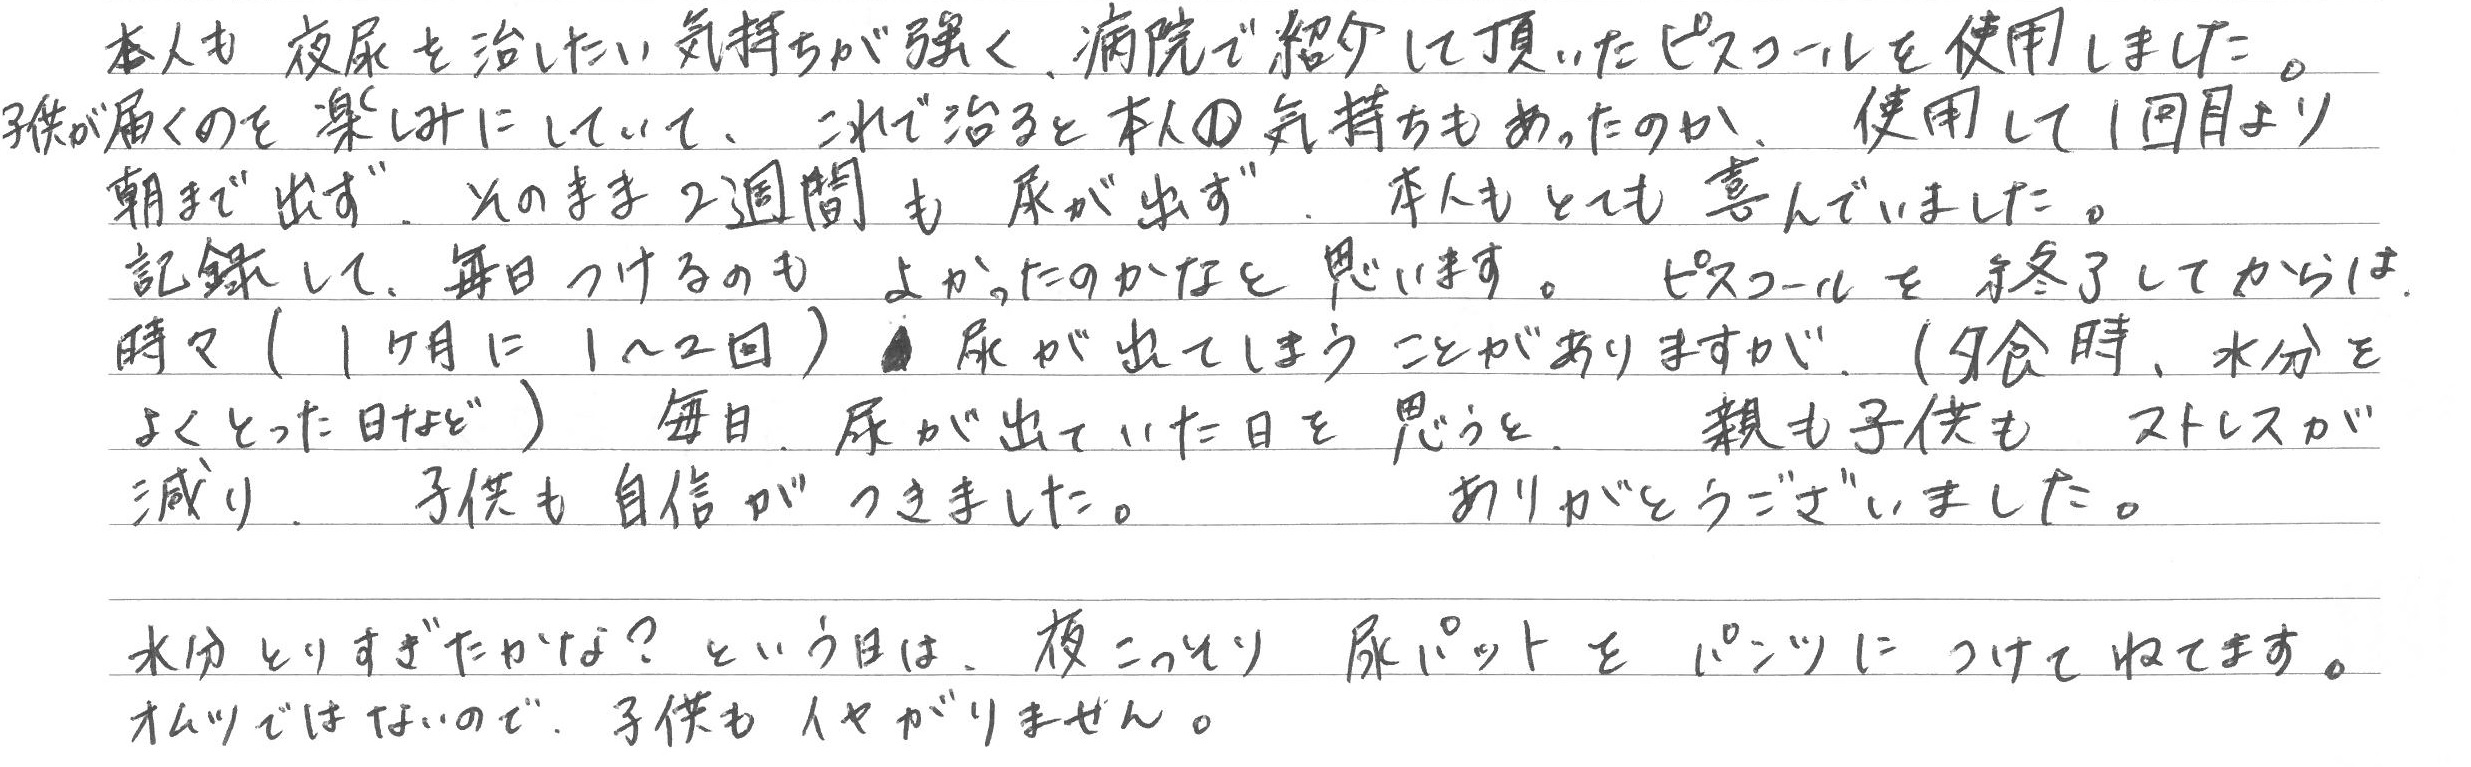 本人も 夜尿を治したい気持ちが強く、病院で紹介して頂いたピスコールを使用しました。
子供が届くのを楽しみにしていて、これで治ると本人の気持ちもあったのか、使用して1回目より
朝まで出ず、そのまま2週間も 尿が出ず、本人もとても喜んでいました。
記録して、毎日つけるのも よかったのかなと思います。 ピスコールを終了してからは、
時々(1ケ月に1～2回) 尿が出てしまうことがありますが、(夕食時、水分を
よくとった日など) 毎日、尿が出ていた日を思うと、 親も子供も ストレスが
減り、 子供も自信がつきました。 ありがとうございました。
水分とりすぎたかな?という日は、夜こっそり 尿パットを パンツに つけてねてます。
オムツではないので、子供もイヤがりません。